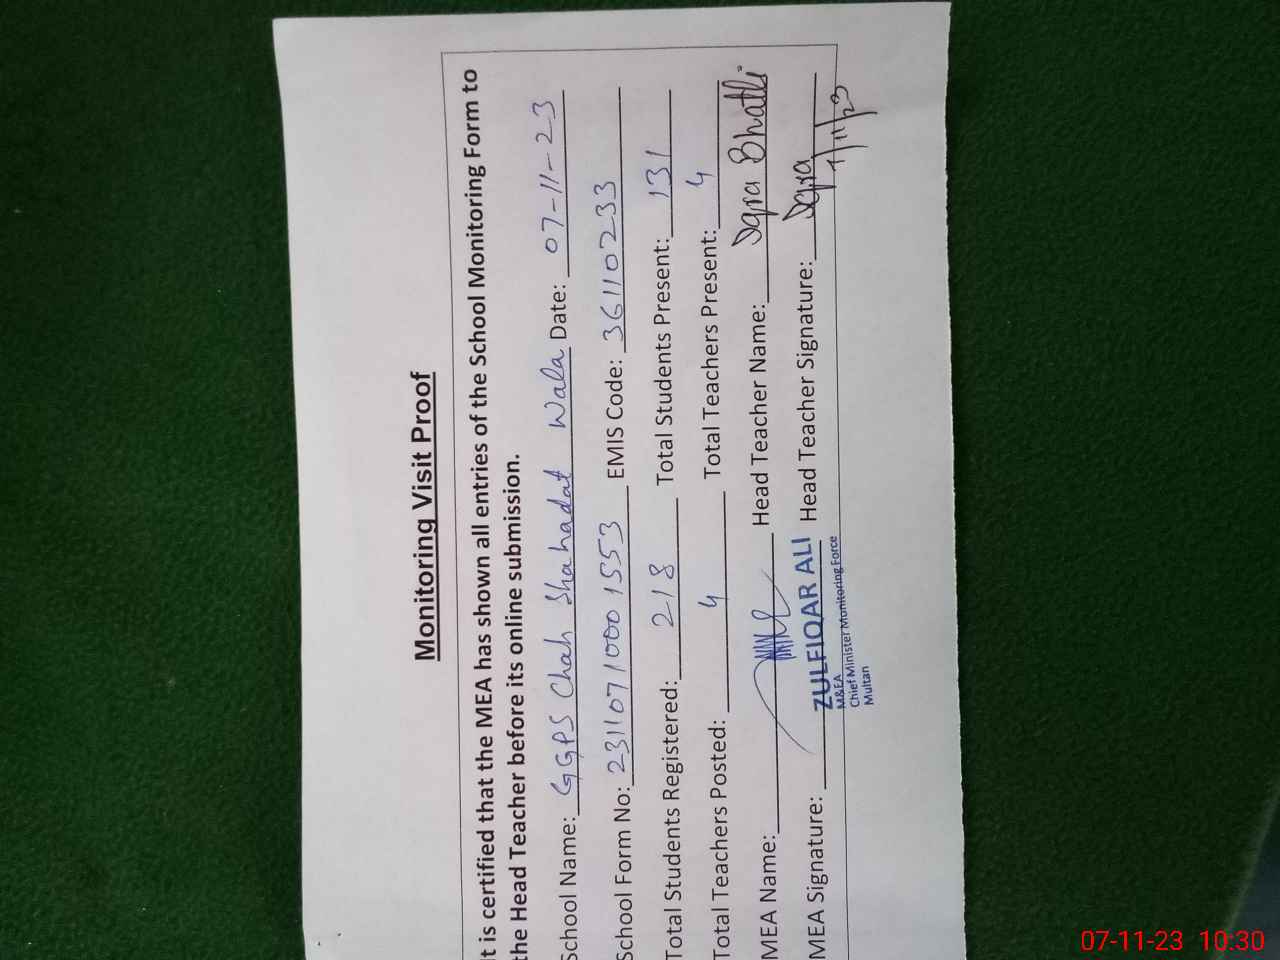 Monitoring Visit Proof
It is certified that the MEA has shown all entries of the School Monitoring Form to
the Head Teacher before its online submission.
School Name: GGPS Chah Shahadat Wala Date: 07-11-23
School Form No: 23110710001553 EMIS Code: 36110233
Total Students Registered: 218 Total Students Present: 131
Total Teachers Posted: 4 Total Teachers Present: 4
MEA Name: Head Teacher Name: Iqra Bhatti
MEA Signature: Head Teacher Signature: Iqra
7/11/23
ZULFIQAR ALI
M&EA
Chief Minister Monitoring Force
Multan
07-11-23 10:30